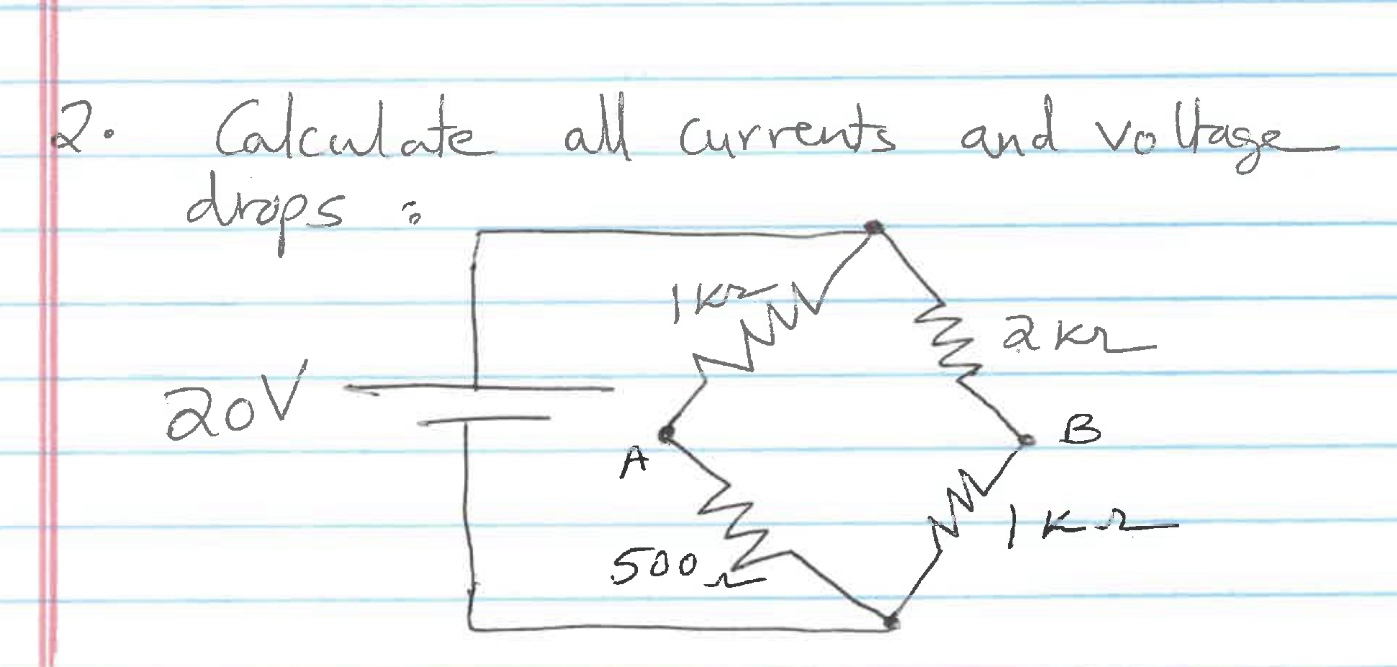 2. Calculate all currents and voltage
drops :
1KΩ
2KΩ
20V
A
B
500Ω
1KΩ